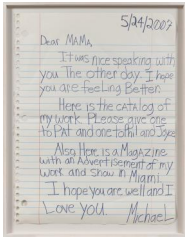 5/24/2007
Dear MAMA,
It was nice speaking with
you The other day. I hope
you are feeling Better.
Here is the CATALOG of
my work. Please give one
to PAT and one to Phil and Joyce
Also Here is a Magazine
with an Advertisement of my
work and show in Miami.
I hope you are well and I
Love you. Michael